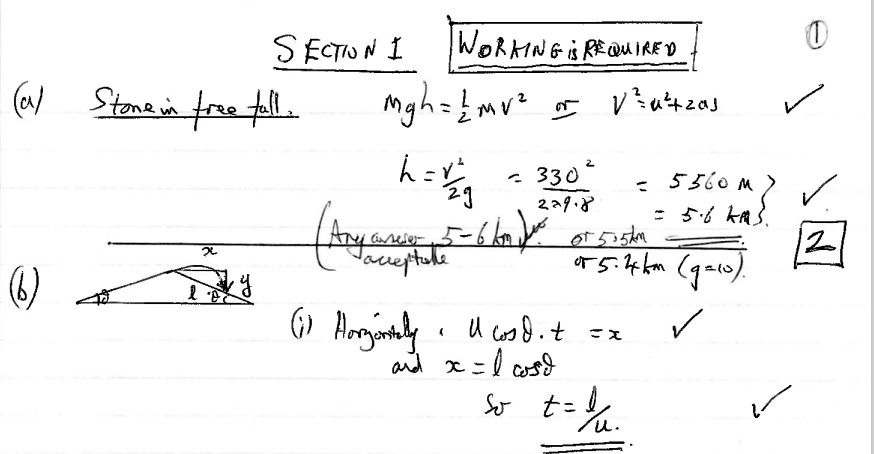 ①
SECTION I WORKING is REQUIRED
(a) Stone in free fall. mgh = ½ mv² or v² = u² + 2as ✓
h = v²/2g = 330²/2×9.8 = 5560 m } ✓
= 5.6 km }
(Any answer 5-6 km) or 5.5km 2
acceptable or 5.4km (g=10).
(b) x
θ l θ y
(i) Horizontally, u cosθ.t = x ✓
and x = l cosθ
So t = l/u. ✓